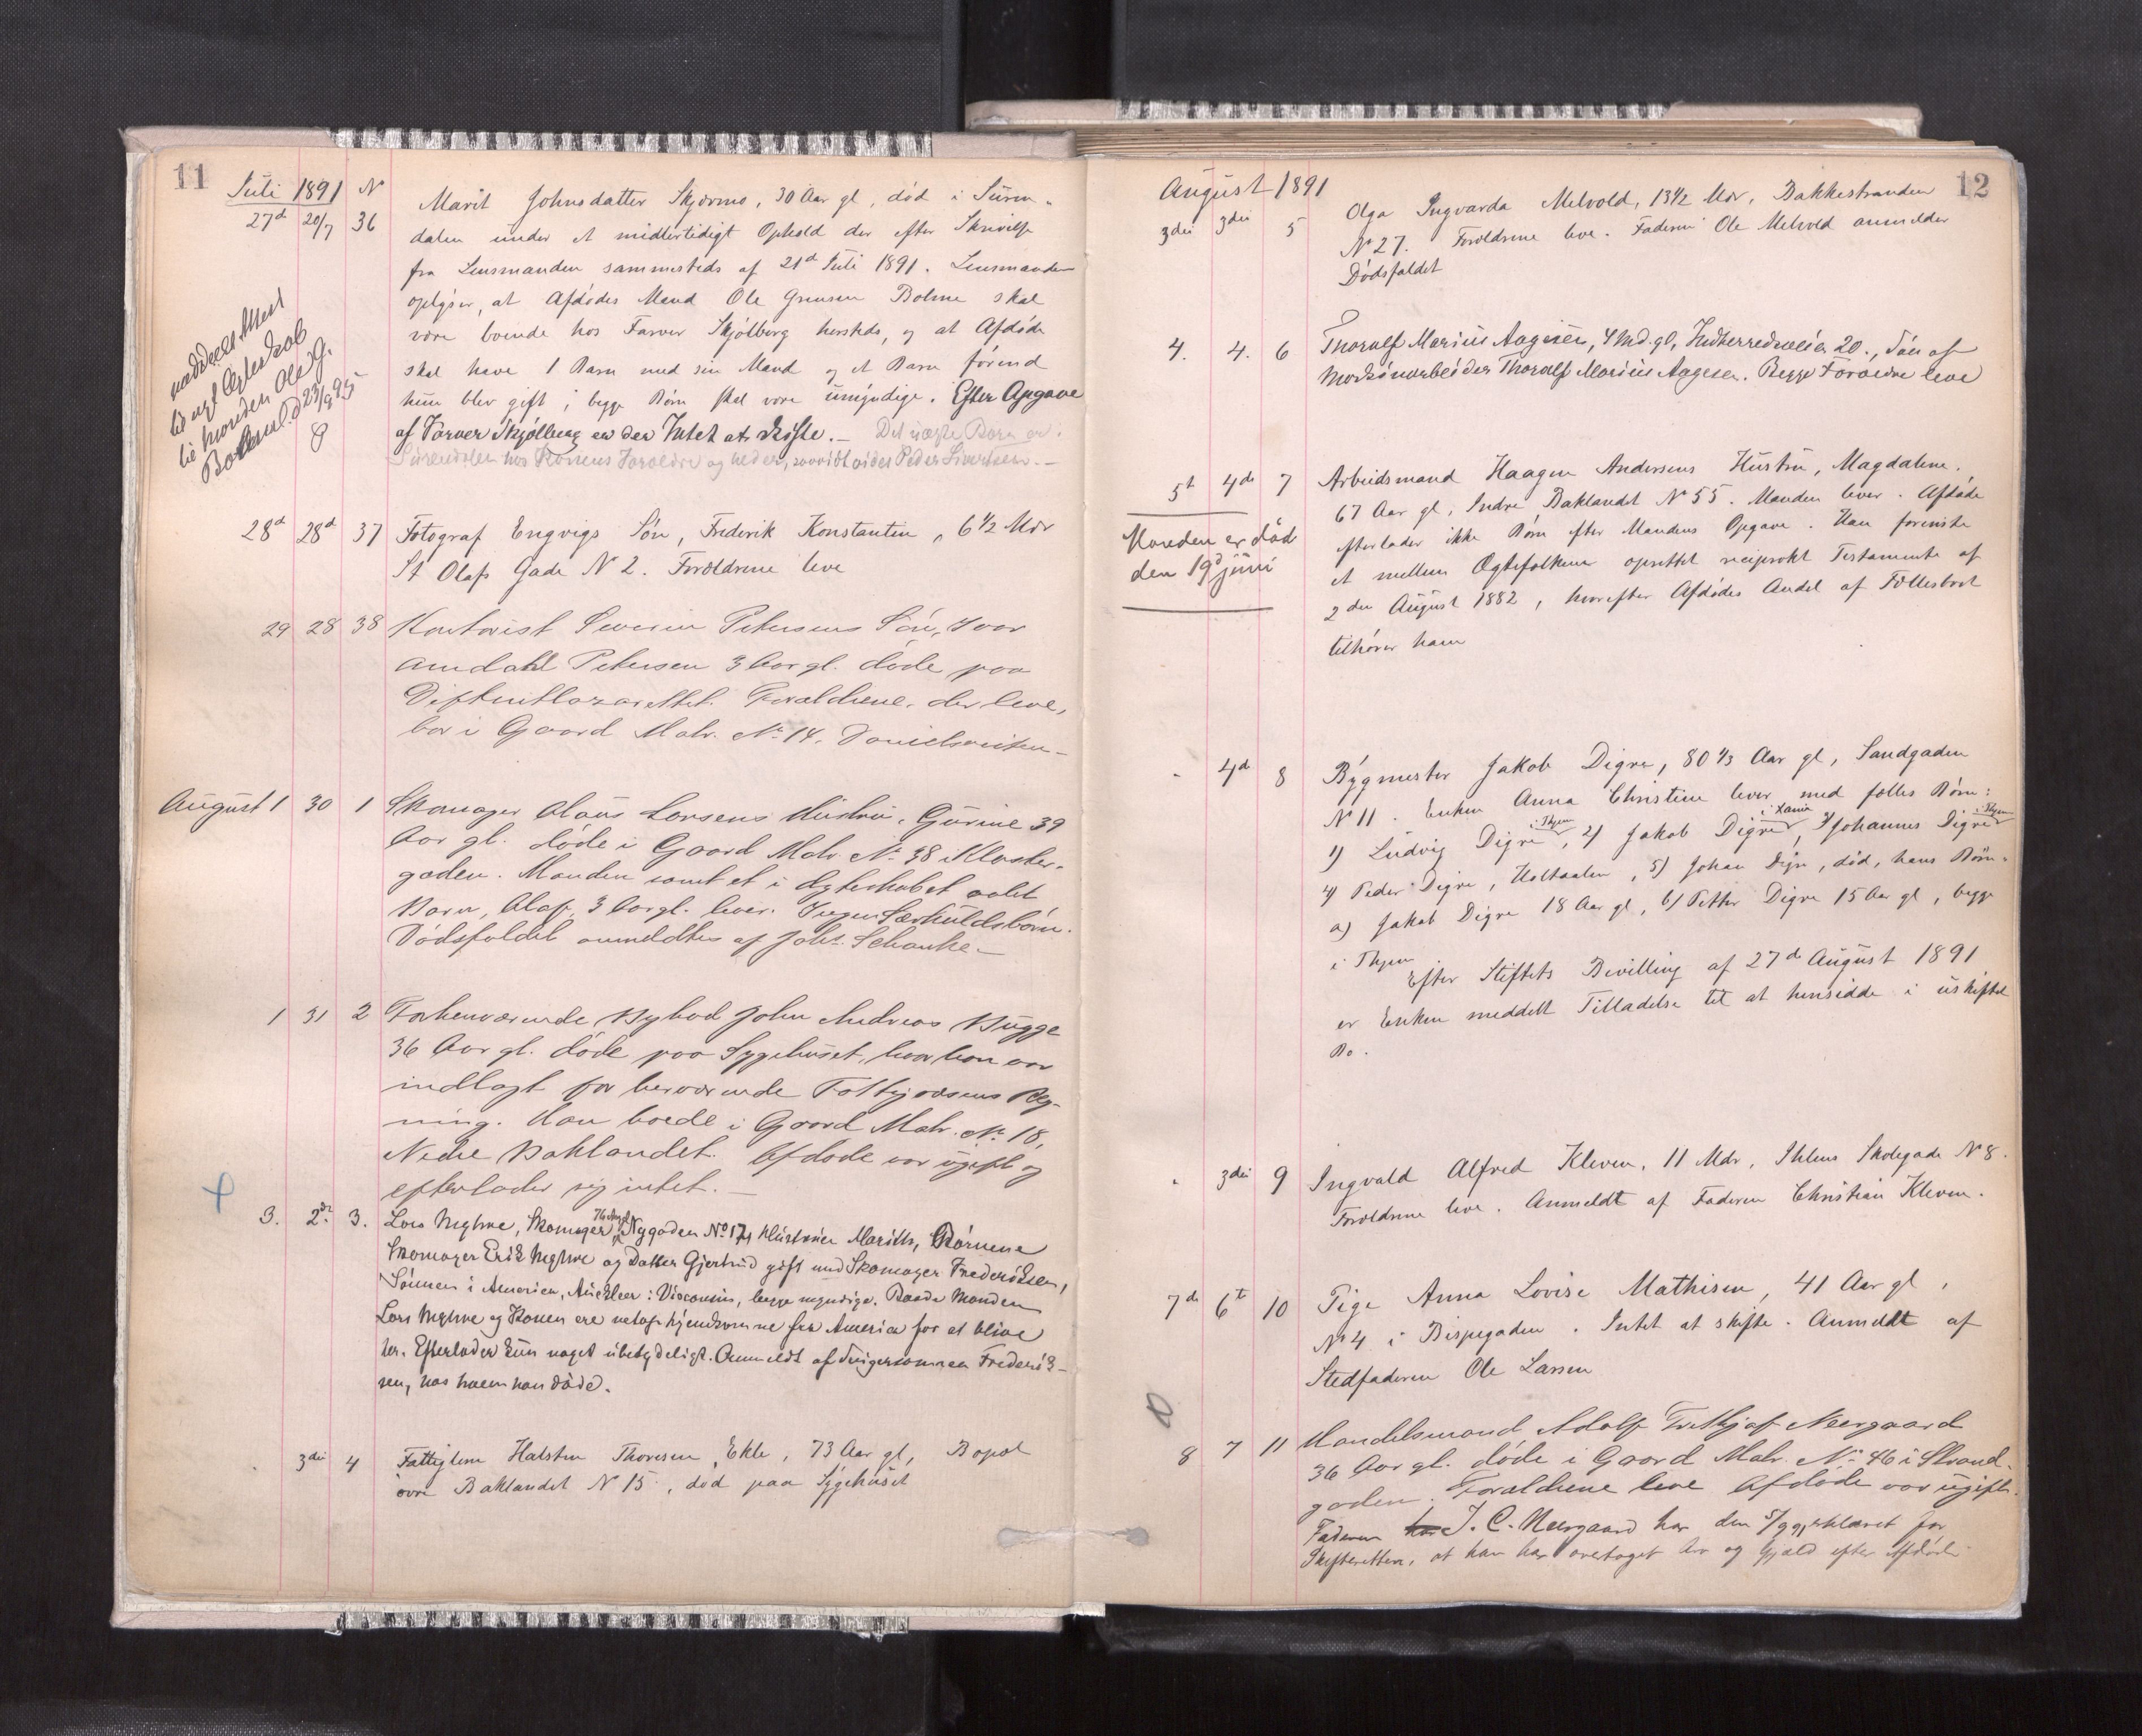 11
Juli 1891 N
27d 20/7 36 Marit Johnsdatter Skjørmo, 30 Aar gl, død i Suren-
dalen under et midlertidigt Ophold der efter Skrivelse
fra Lensmanden sammesteds af 21d Juli 1891. Lensmanden
oplyser, at Afdødes Mand Ole Bolme skal
være boende hos Farver Skjølberg hersteds, og at Afdøde
skal have 1 Barn med sin Mand og et Barn førend
hun blev gift; begge Børn skal være umyndige. Efter Opgave
af Farver Skjølberg er der Intet at skifte. — Det Barn er i
Surendalen hos Konens Forældre og heder, saavidt vides Peder Sivertsen. —
meddeelt Attest
til nyt Ægteskab
til manden Ole G.
28d 28d 37 Fotograf Engvigs Søn, Frederik Konstantin, 6 1/2 Mdr
St Olafs Gade N 2. Forældrene leve
29 28 38 Kontorist Severin Petersens Søn, Ivar
Amdahl Petersen 3 Aar gl. døde paa
Difteritlazarettet. Forældrene, der leve,
bor i Gaard Matr. No 14, Danielsveiten —
August 1 30 1 Skomager Olaus Larsens Hustru, Gurine 39
Aar gl. døde i Gaard Matr. No 38 i Kloster-
gaden. Manden samt et i Ægteskabet avlet
Barn, Olaf, 3 Aar gl. lever. Ingen Særkuldsbørn.
Dødsfaldet anmeldtes af Johs. Schanke —
1 31 2 Forhenværende Bybud John Andreas Bugge
36 Aar gl. døde paa Sygehuset, hvor han var
indlagt for herværende Fattigvæsens Reg-
ning. Han boede i Gaard Matr. No 18,
Nedre Baklandet. Afdøde var ugift og
efterlader sig intet. —
3. 2de 3. Lars Myhre, Skomager, 76 Aar gl. Nygaden No 17, Hustruen Marith, Børnene
Skomager Erik Myhre og Datter Gjertrud gift med Skomager Frederiksen,
Sønnen i America, : Visconsin, begge myndige. Baade Manden
Lars Myhre og Konen ere netop hjemkomne fra America for at blive
her. Efterlader kun noget ubetydeligt. Anmeldt af Svigersønnen Frederik-
sen, hos hvem han døde.
3die 4 Fattiglem Halsten Thoresen Ekle, 73 Aar gl, Bopæl
øvre Baklandet N 15, død paa Sygehuset
12
August 1891
3die 3die 5 Olga Ingvarda Melvold, 13 1/2 Mdr, Bakkestranden
N 27. Forældrene leve. Faderen Ole Melvold anmelder
Dødsfaldet
4. 4. 6 Thoralf Marius Aagesen, 4 Md. gl, Indherredsveien 20., Søn af
Maskinarbeider Thoralf Marius Aagesen. Begge Forældre leve
5t 4de 7 Arbeidsmand Haagen Andersens Hustru, Magdalene,
67 Aar gl, Indre Baklandet N 55. Manden lever. Afdøde
efterlader ikke Børn efter Mandens Opgave. Han foreviste
et mellem Ægtefolkene oprettet reciprokt Testamente af
2den August 1882, hvorefter Afdødes Andel af Fællesboet
tilhører ham
Manden er død
den 19d juni
" 4d 8 Bygmester Jakob Digre, 80 1/3 Aar gl, Sandgaden
N 11. Enken Anna Christine lever med fælles Børn:
1) Ludvig Digre i Thjem, 2) Jakob Digre, 3) Johannes Digre i Thjem
4) Peder Digre, Holtaalen, 5) Johan Digre, død, hans Børn:
a) Jakob Digre 18 Aar gl, b) Petter Digre 15 Aar gl, begge
i Thjem
Efter Stiftets Bevilling af 27de August 1891
er Enken meddelt Tilladelse til at hensidde i uskiftet
Bo.
" 3die 9 Ingvald Alfred Kleven, 11 Mdr, Ihlens Skolegade N 8.
Forældrene leve. Anmeldt af Faderen Christian Kleven.
7de 6t 10 Pige Anna Lovise Mathisen, 41 Aar gl,
N 4 i Bispegaden. Intet at skifte. Anmeldt af
Stedfaderen Ole Larsen
8 7 11 Handelsmand Adolf Frithjof Neergaard
36 Aar gl. døde i Gaard Matr. No 46 i Strand-
gaden. Forældrene leve Afdøde var ugift.
Faderen J. C. Neergaard har den erklæret for
Skifteretten, at han har overtaget Arv og Gjæld efter Afdøde